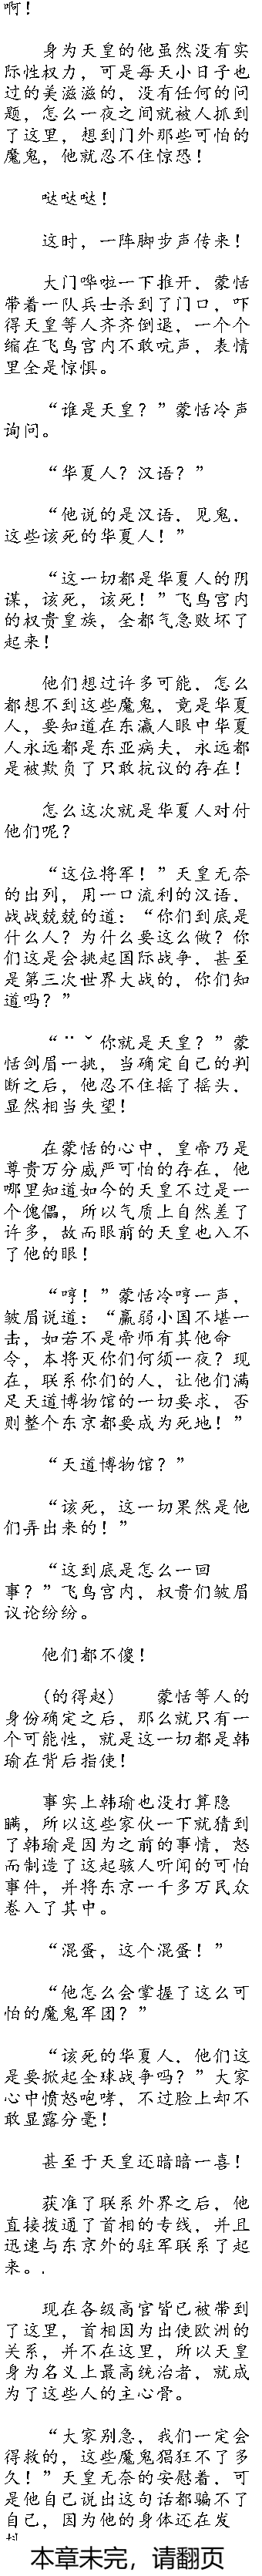 啊！
身为天皇的他虽然没有实
际性权力，可是每天小日子也
过的美滋滋的，没有任何的问
题，怎么一夜之间就被人抓到
了这里，想到门外那些可怕的
魔鬼，他就忍不住惊恐！
哒哒哒！
这时，一阵脚步声传来！
大门哗啦一下推开，蒙恬
带着一队兵士杀到了门口，吓
得天皇等人齐齐倒退，一个个
缩在飞鸟宫内不敢吭声，表情
里全是惊惧。
“谁是天皇？”蒙恬冷声
询问。
“华夏人？汉语？”
“他说的是汉语，见鬼，
这些该死的华夏人！”
“这一切都是华夏人的阴
谋，该死，该死！”飞鸟宫内
的权贵皇族，全都气急败坏了
起来！
他们想过许多可能，怎么
都想不到这些魔鬼，竟是华夏
人，要知道在东瀛人眼中华夏
人永远都是东亚病夫，永远都
是被欺负了只敢抗议的存在！
怎么这次就是华夏人对付
他们呢？
“这位将军！”天皇无奈
的出列，用一口流利的汉语，
战战兢兢的道：“你们到底是
什么人？为什么要这么做？你
们这是会挑起国际战争，甚至
是第三次世界大战的，你们知
道吗？”
“¨ˇ你就是天皇？”蒙
恬剑眉一挑，当确定自己的判
断之后，他忍不住摇了摇头，
显然相当失望！
在蒙恬的心中，皇帝乃是
尊贵万分威严可怕的存在，他
哪里知道如今的天皇不过是一
个傀儡，所以气质上自然差了
许多，故而眼前的天皇也入不
了他的眼！
“哼！”蒙恬冷哼一声，
皱眉说道：“羸弱小国不堪一
击，如若不是帝师有其他命
令，本将灭你们何须一夜？现
在，联系你们的人，让他们满
足天道博物馆的一切要求，否
则整个东京都要成为死地！”
“天道博物馆？”
“该死，这一切果然是他
们弄出来的！”
“这到底是怎么一回
事？”飞鸟宫内，权贵们皱眉
议论纷纷。
他们都不傻！
(的得赵) 蒙恬等人的
身份确定之后，那么就只有一
个可能性，就是这一切都是韩
瑜在背后指使！
事实上韩瑜也没打算隐
瞒，所以这些家伙一下就猜到
了韩瑜是因为之前的事情，怒
而制造了这起骇人听闻的可怕
事件，并将东京一千多万民众
卷入了其中。
“混蛋，这个混蛋！”
“他怎么会掌握了这么可
怕的魔鬼军团？”
“该死的华夏人，他们这
是要掀起全球战争吗？”大家
心中愤怒咆哮，不过脸上却不
敢显露分毫！
甚至于天皇还暗暗一喜！
获准了联系外界之后，他
直接拨通了首相的专线，并且
迅速与东京外的驻军联系了起
来。.
现在各级高官皆已被带到
了这里，首相因为出使欧洲的
关系，并不在这里，所以天皇
身为名义上最高统治者，就成
为了这些人的主心骨。
“大家别急，我们一定会
得救的，这些魔鬼猖狂不了多
久！”天皇无奈的安慰着，可
是他自己说出这句话都骗不了
自己，因为他的身体还在发
抖
本章未完，请翻页